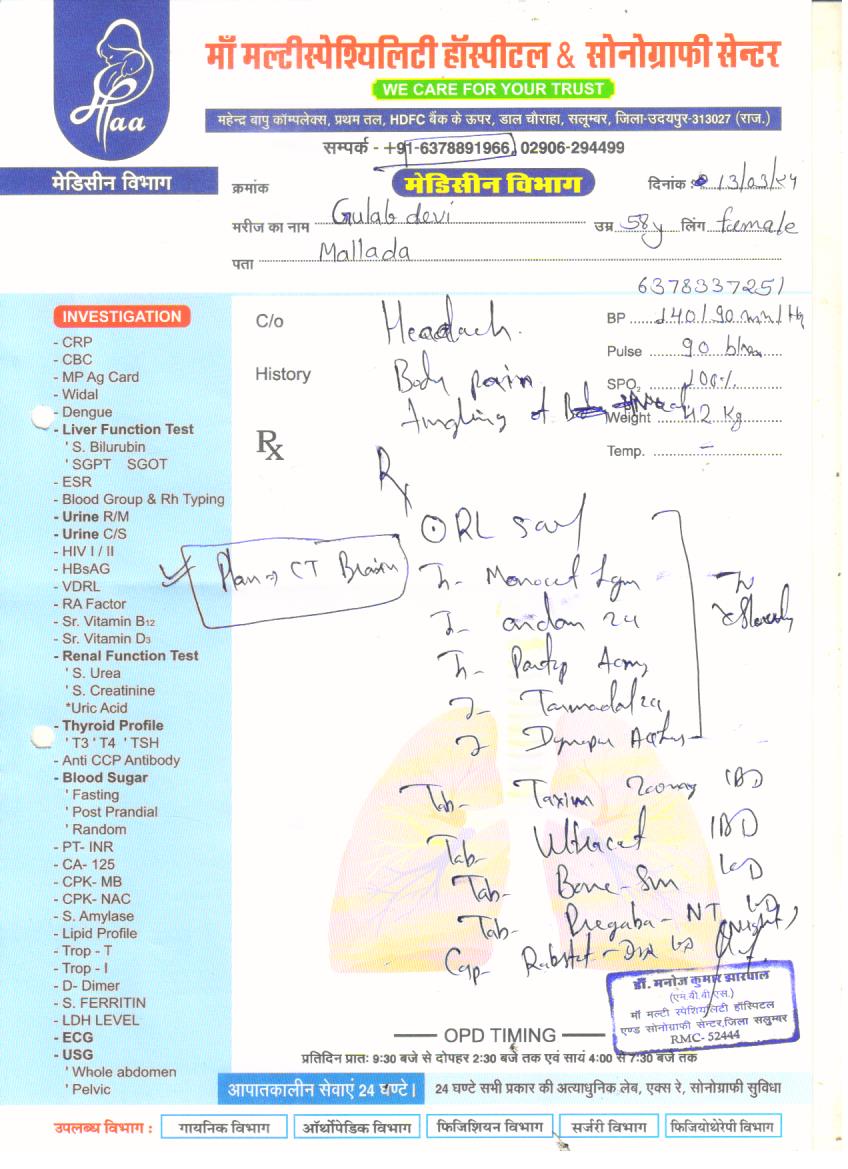 माँ मल्टीस्पेश्यिलिटी हॉस्पीटल & सोनोग्राफी सेन्टर
WE CARE FOR YOUR TRUST
माँaa
महेन्द्र बापु कॉम्पलेक्स, प्रथम तल, HDFC बैंक के ऊपर, डाल चौराहा, सलूम्बर, जिला-उदयपुर-313027 (राज.)
सम्पर्क - +91-6378891966, 02906-294499
मेडिसीन विभाग
क्रमांक मेडिसीन विभाग दिनांक : 13/03/24
मरीज का नाम Gulab devi उम्र 58y लिंग female
पता Mallada
6378337251
INVESTIGATION
- CRP
- CBC
- MP Ag Card
- Widal
- Dengue
- Liver Function Test
' S. Bilurubin
' SGPT SGOT
- ESR
- Blood Group & Rh Typing
- Urine R/M
- Urine C/S
- HIV I / II
- HBsAG
- VDRL
- RA Factor
- Sr. Vitamin B12
- Sr. Vitamin D3
- Renal Function Test
' S. Urea
' S. Creatinine
*Uric Acid
- Thyroid Profile
' T3 ' T4 ' TSH
- Anti CCP Antibody
- Blood Sugar
' Fasting
' Post Prandial
' Random
- PT- INR
- CA- 125
- CPK- MB
- CPK- NAC
- S. Amylase
- Lipid Profile
- Trop - T
- Trop - I
- D- Dimer
- S. FERRITIN
- LDH LEVEL
- ECG
- USG
' Whole abdomen
' Pelvic
C/o Headach.
History Body pain
BP 140/90 mm/Hg
Pulse 90 b/m
SPO2 100%
Weight 42 Kg
Temp. -
Rx
Rx
RL
Plan => CT Brain
Monocef 1gm
Tab- Taxim 200mg 1BD
Tab- Ultracet 1BD
Tab- Bone-
Tab- Pregaba-NT (Night)
Cap-
डॉ. मनोज कुमार
(एम.बी.बी.एस.)
माँ मल्टी स्पेशियलिटी हॉस्पिटल
एण्ड सोनोग्राफी सेन्टर,जिला सलुम्बर
RMC- 52444
OPD TIMING
प्रतिदिन प्रातः 9:30 बजे से दोपहर 2:30 बजे तक एवं सायं 4:00 से 7:30 बजे तक
आपातकालीन सेवाएं 24 घण्टे। 24 घण्टे सभी प्रकार की अत्याधुनिक लेब, एक्स रे, सोनोग्राफी सुविधा
उपलब्ध विभाग : गायनिक विभाग ऑर्थोपेडिक विभाग फिजिशियन विभाग सर्जरी विभाग फिजियोथेरेपी विभाग